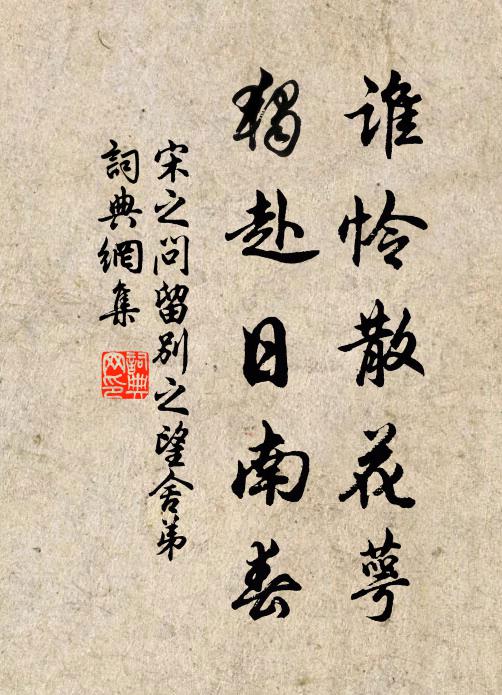 谁怜散花萼
独赴日南春
宋之问留别之望舍弟
詞典網集
詞典網印